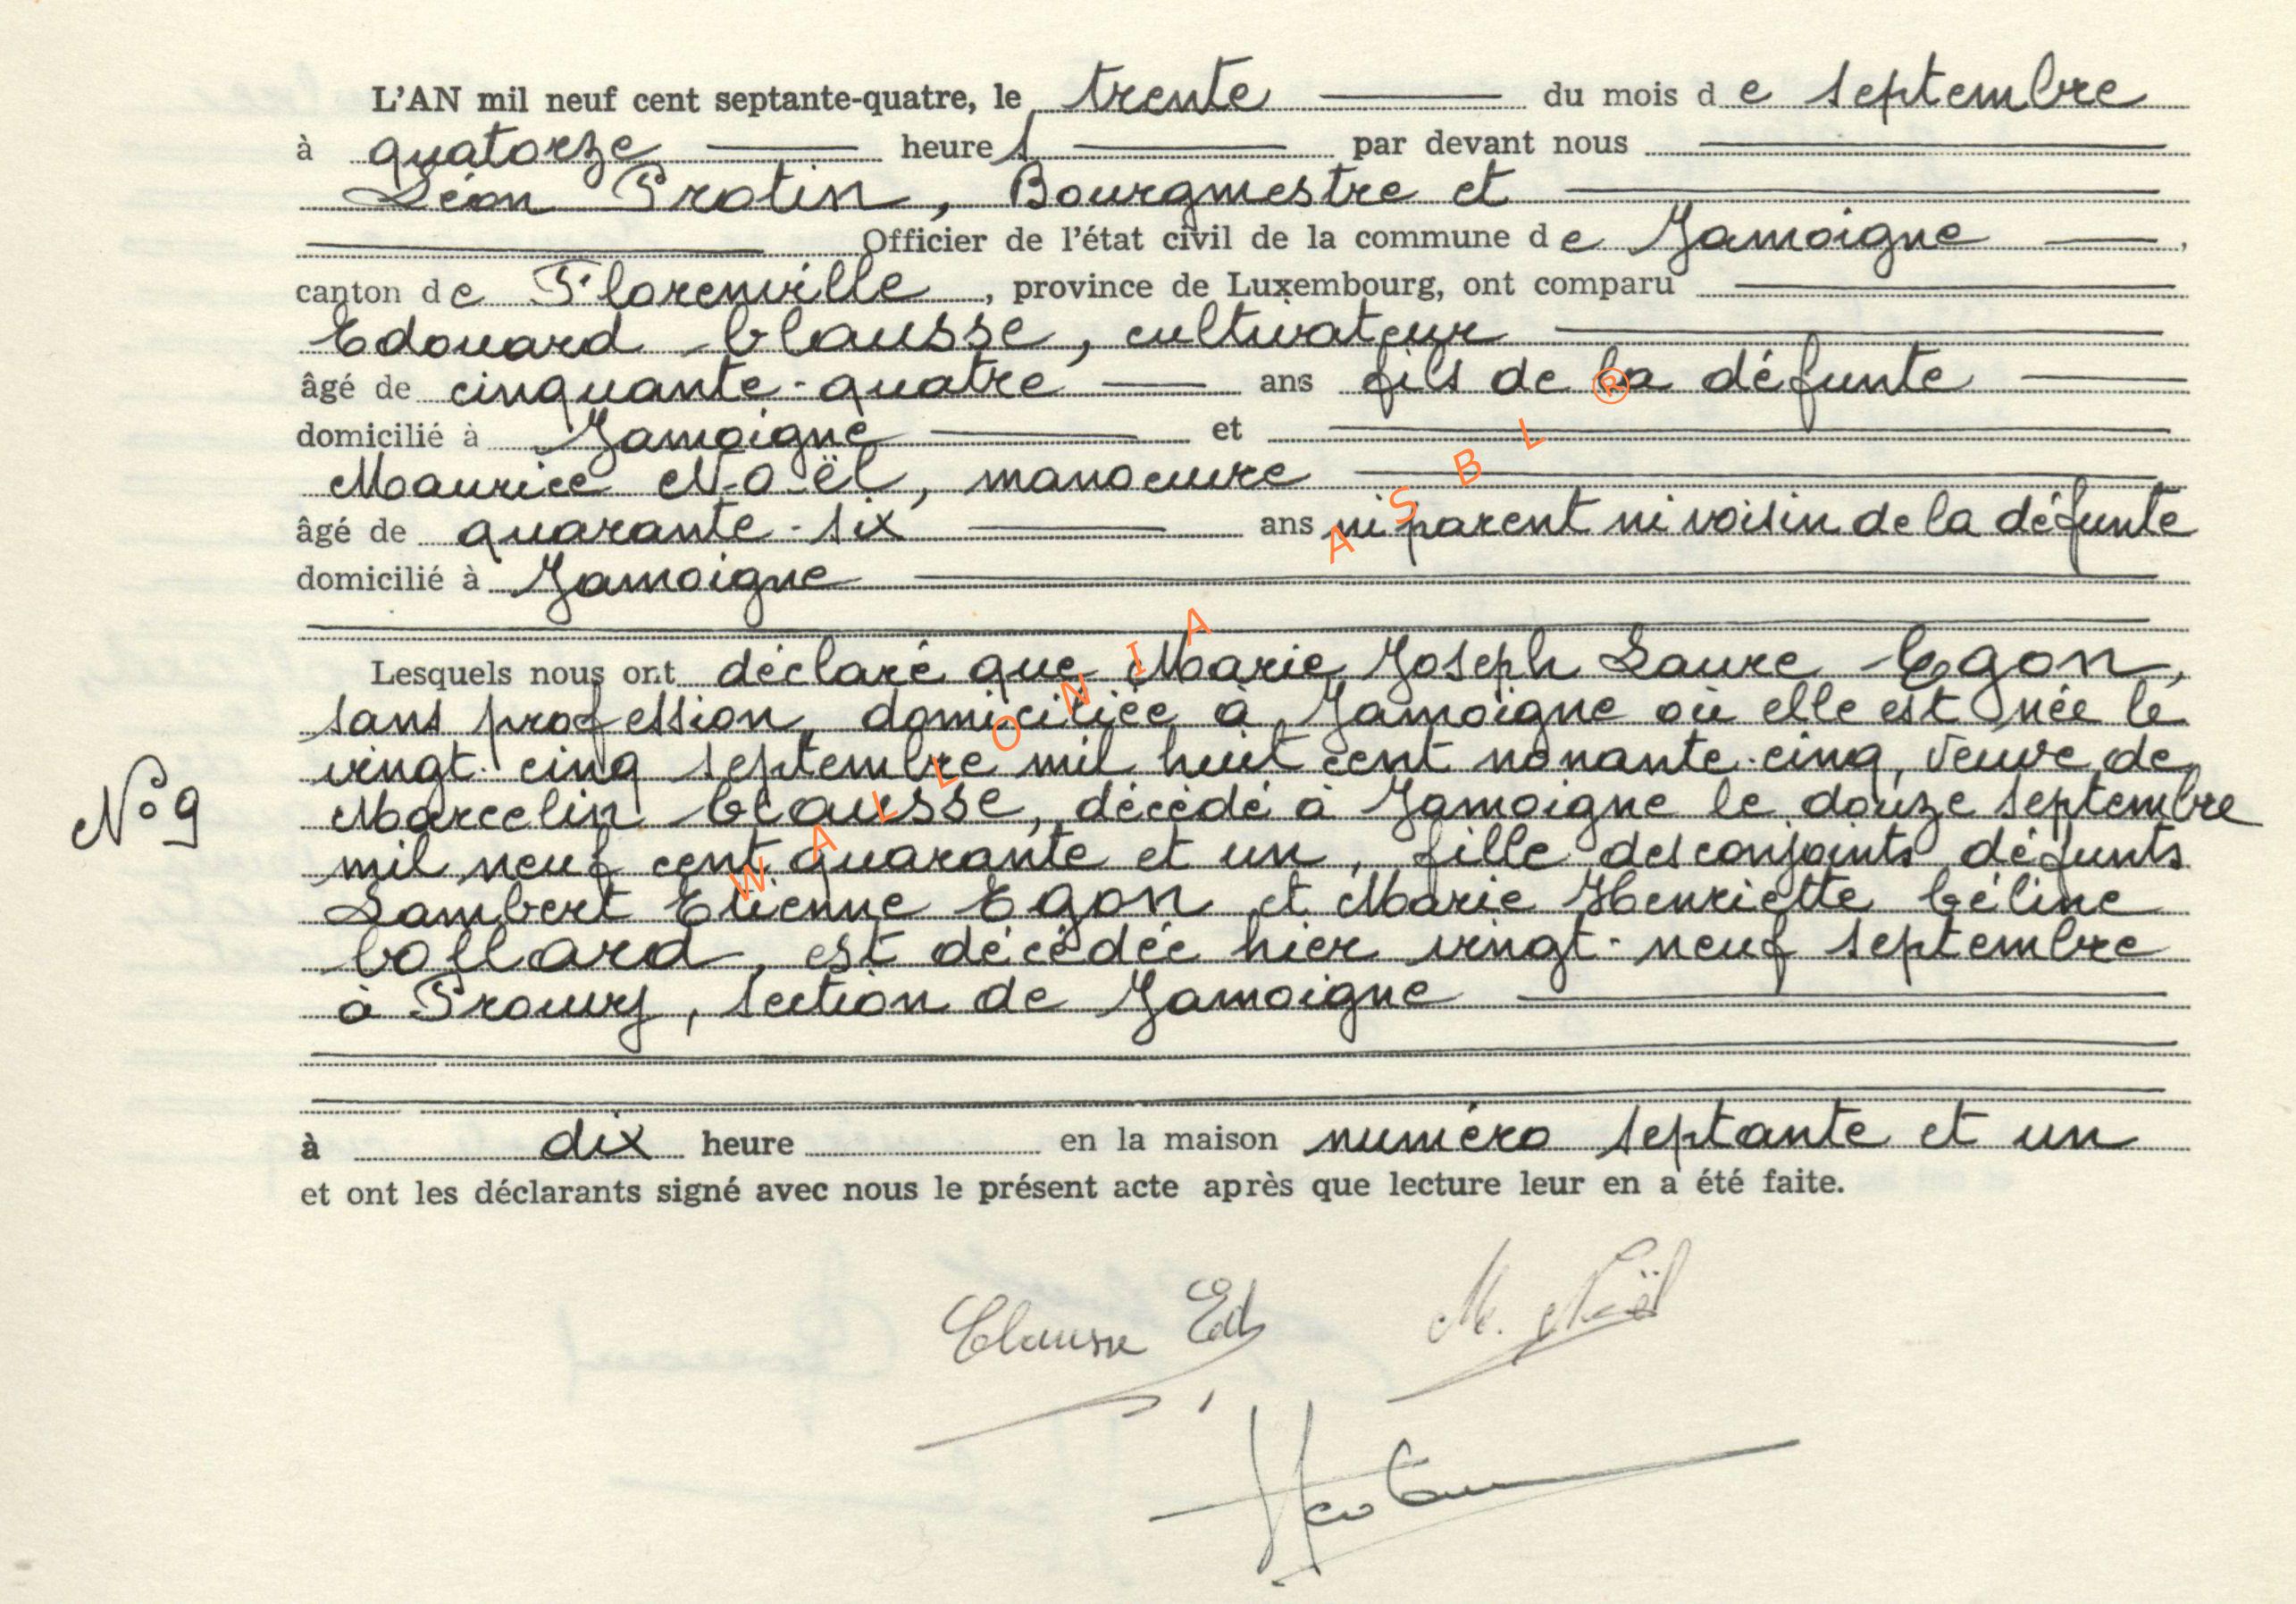 L'AN mil neuf cent septante-quatre, le trente du mois de septembre
à quatorze heures par devant nous
Léon Protin, Bourgmestre et
Officier de l'état civil de la commune de Jamoigne,
canton de Florenville, province de Luxembourg, ont comparu
Edouard Clausse, cultivateur
âgé de cinquante-quatre ans fils de la défunte
domicilié à Jamoigne et
Maurice Noël, manoeuvre
âgé de quarante-six ans ni parent ni voisin de la défunte
domicilié à Jamoigne
Lesquels nous ont déclaré que Marie Joseph Laure Egon,
sans profession, domiciliée à Jamoigne où elle est née le
vingt-cinq septembre mil huit cent nonante-cinq, veuve de
N° 9
Marcelin Clausse, décédé à Jamoigne le douze septembre
mil neuf cent quarante et un, fille des conjoints défunts
Lambert Etienne Egon et Marie Henriette Céline
Collard, est décédée hier vingt-neuf septembre
à Prouvy, section de Jamoigne
à dix heure en la maison numéro septante et un
et ont les déclarants signé avec nous le présent acte après que lecture leur en a été faite.
Clausse Ed
M. Noël
WALLONIA ASBL ®